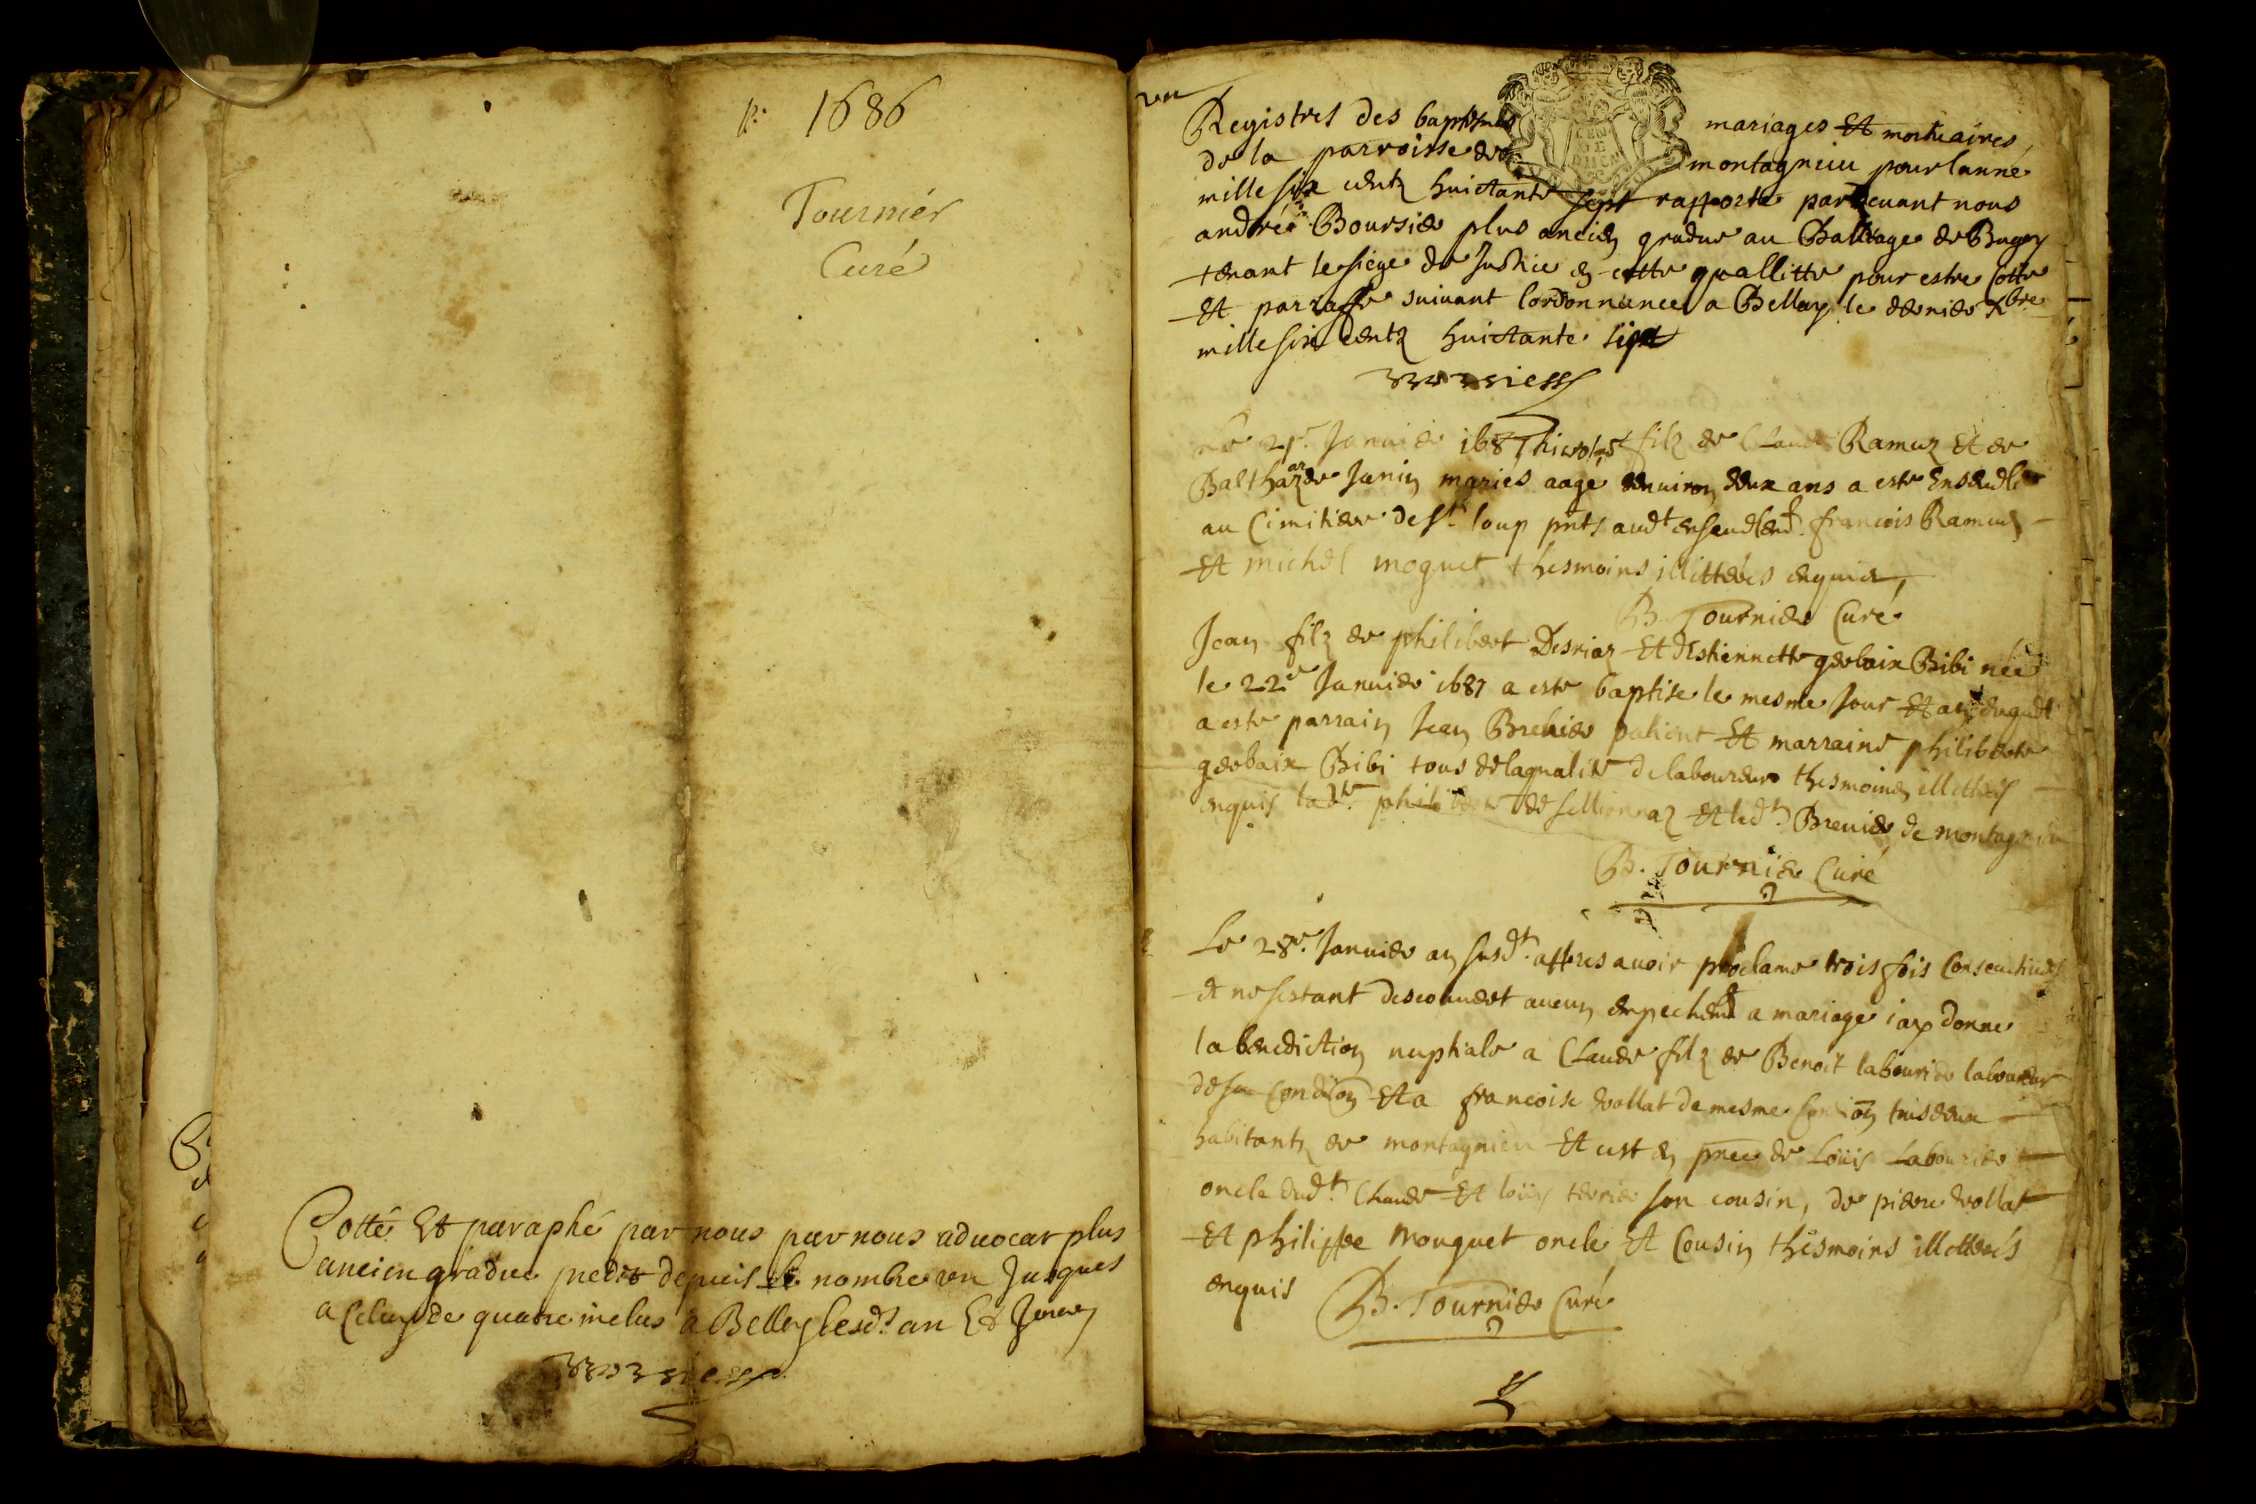 p. 1686
Tournier
Curé
Cotté Et paraphé par nous par nous aduocat plus
ancien gradué depuis le nombre un Jusques
a Celuy de quatre inclus a Belley lesd. an Et Jour
un
Registres des baptesmes mariages Et mortuaires
de la parroisse de montagnieu pour lanné
mille six centz huictante sept rapporte pardeuant nous
andré Boursier plus ancien gradue au Balliage de Bugey
tenant le siege de Justice en cette quallitte pour estre Cotte
Et parraffe suiuant lordonnance a Belley le dernier Xbre
mille six centz huictante sept
Le 21e Januier 1687 filz de Claude Ramuz Et de
Balthazarde Janin mariés aagé denuiron deux ans a este Enseuely
au Cimitiere de St loup pnts audt enseuelmt francois Ramuz
Et michel moguet thesmoins illitterés enquis,
B. Tournier Curé
Jean filz de philibert Desriaz Et destiennette gerbaix Bibi née
le 22e Januier 1687 a este baptise le mesme Jour Et
a este parrain Jean Breuier Et marraine philiberte
gerbaix Bibi tous de la qualité de laboureurs thesmoins illitterés
enquis ladte philiberte de sellionnaz Et ledt Breuier de montagnieu
B. Tournier Curé
Le 28e Januier an susdt appres auoir proclame trois fois Consecutiues
et ne sestant descouuert aucun empechemt a mariage iay donne
la benediction nuptiale a Claude filz de Benoit labourier laboureur
de sa Condion Et a francoise vollat de mesme Condion tous deux
habitantz de montagnieu Et cest en pnce de Loüis Labourier
oncle dudt Claude Et loüis terrier son cousin, de pierre vollat
Et philippe mouguet oncle Et Cousin thesmoins illitterés
enquis B. Tournier Curé